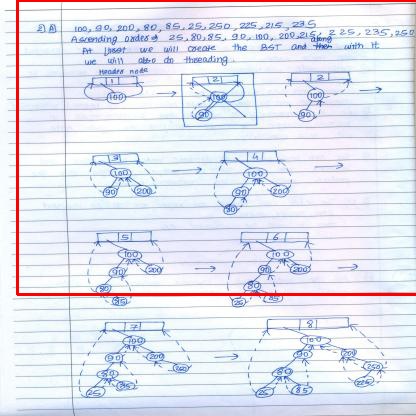 2) A) 100, 90, 200, 80, 85, 25, 250, 225, 215, 235
Ascending order ⇒ 25, 80, 85, 90, 100, 200, 215, 225, 235, 250
At first we will create the BST and along with it
we will also do threading.
Header node
1 2 2
100 100 100
90 90
3 4
100 100
90 200 90 200
80
5 6
100 100
90 200 90 200
80 80
85 25 85
7 8
100 100
90 200 90 200
80 250 80 250
25 85 25 85 225